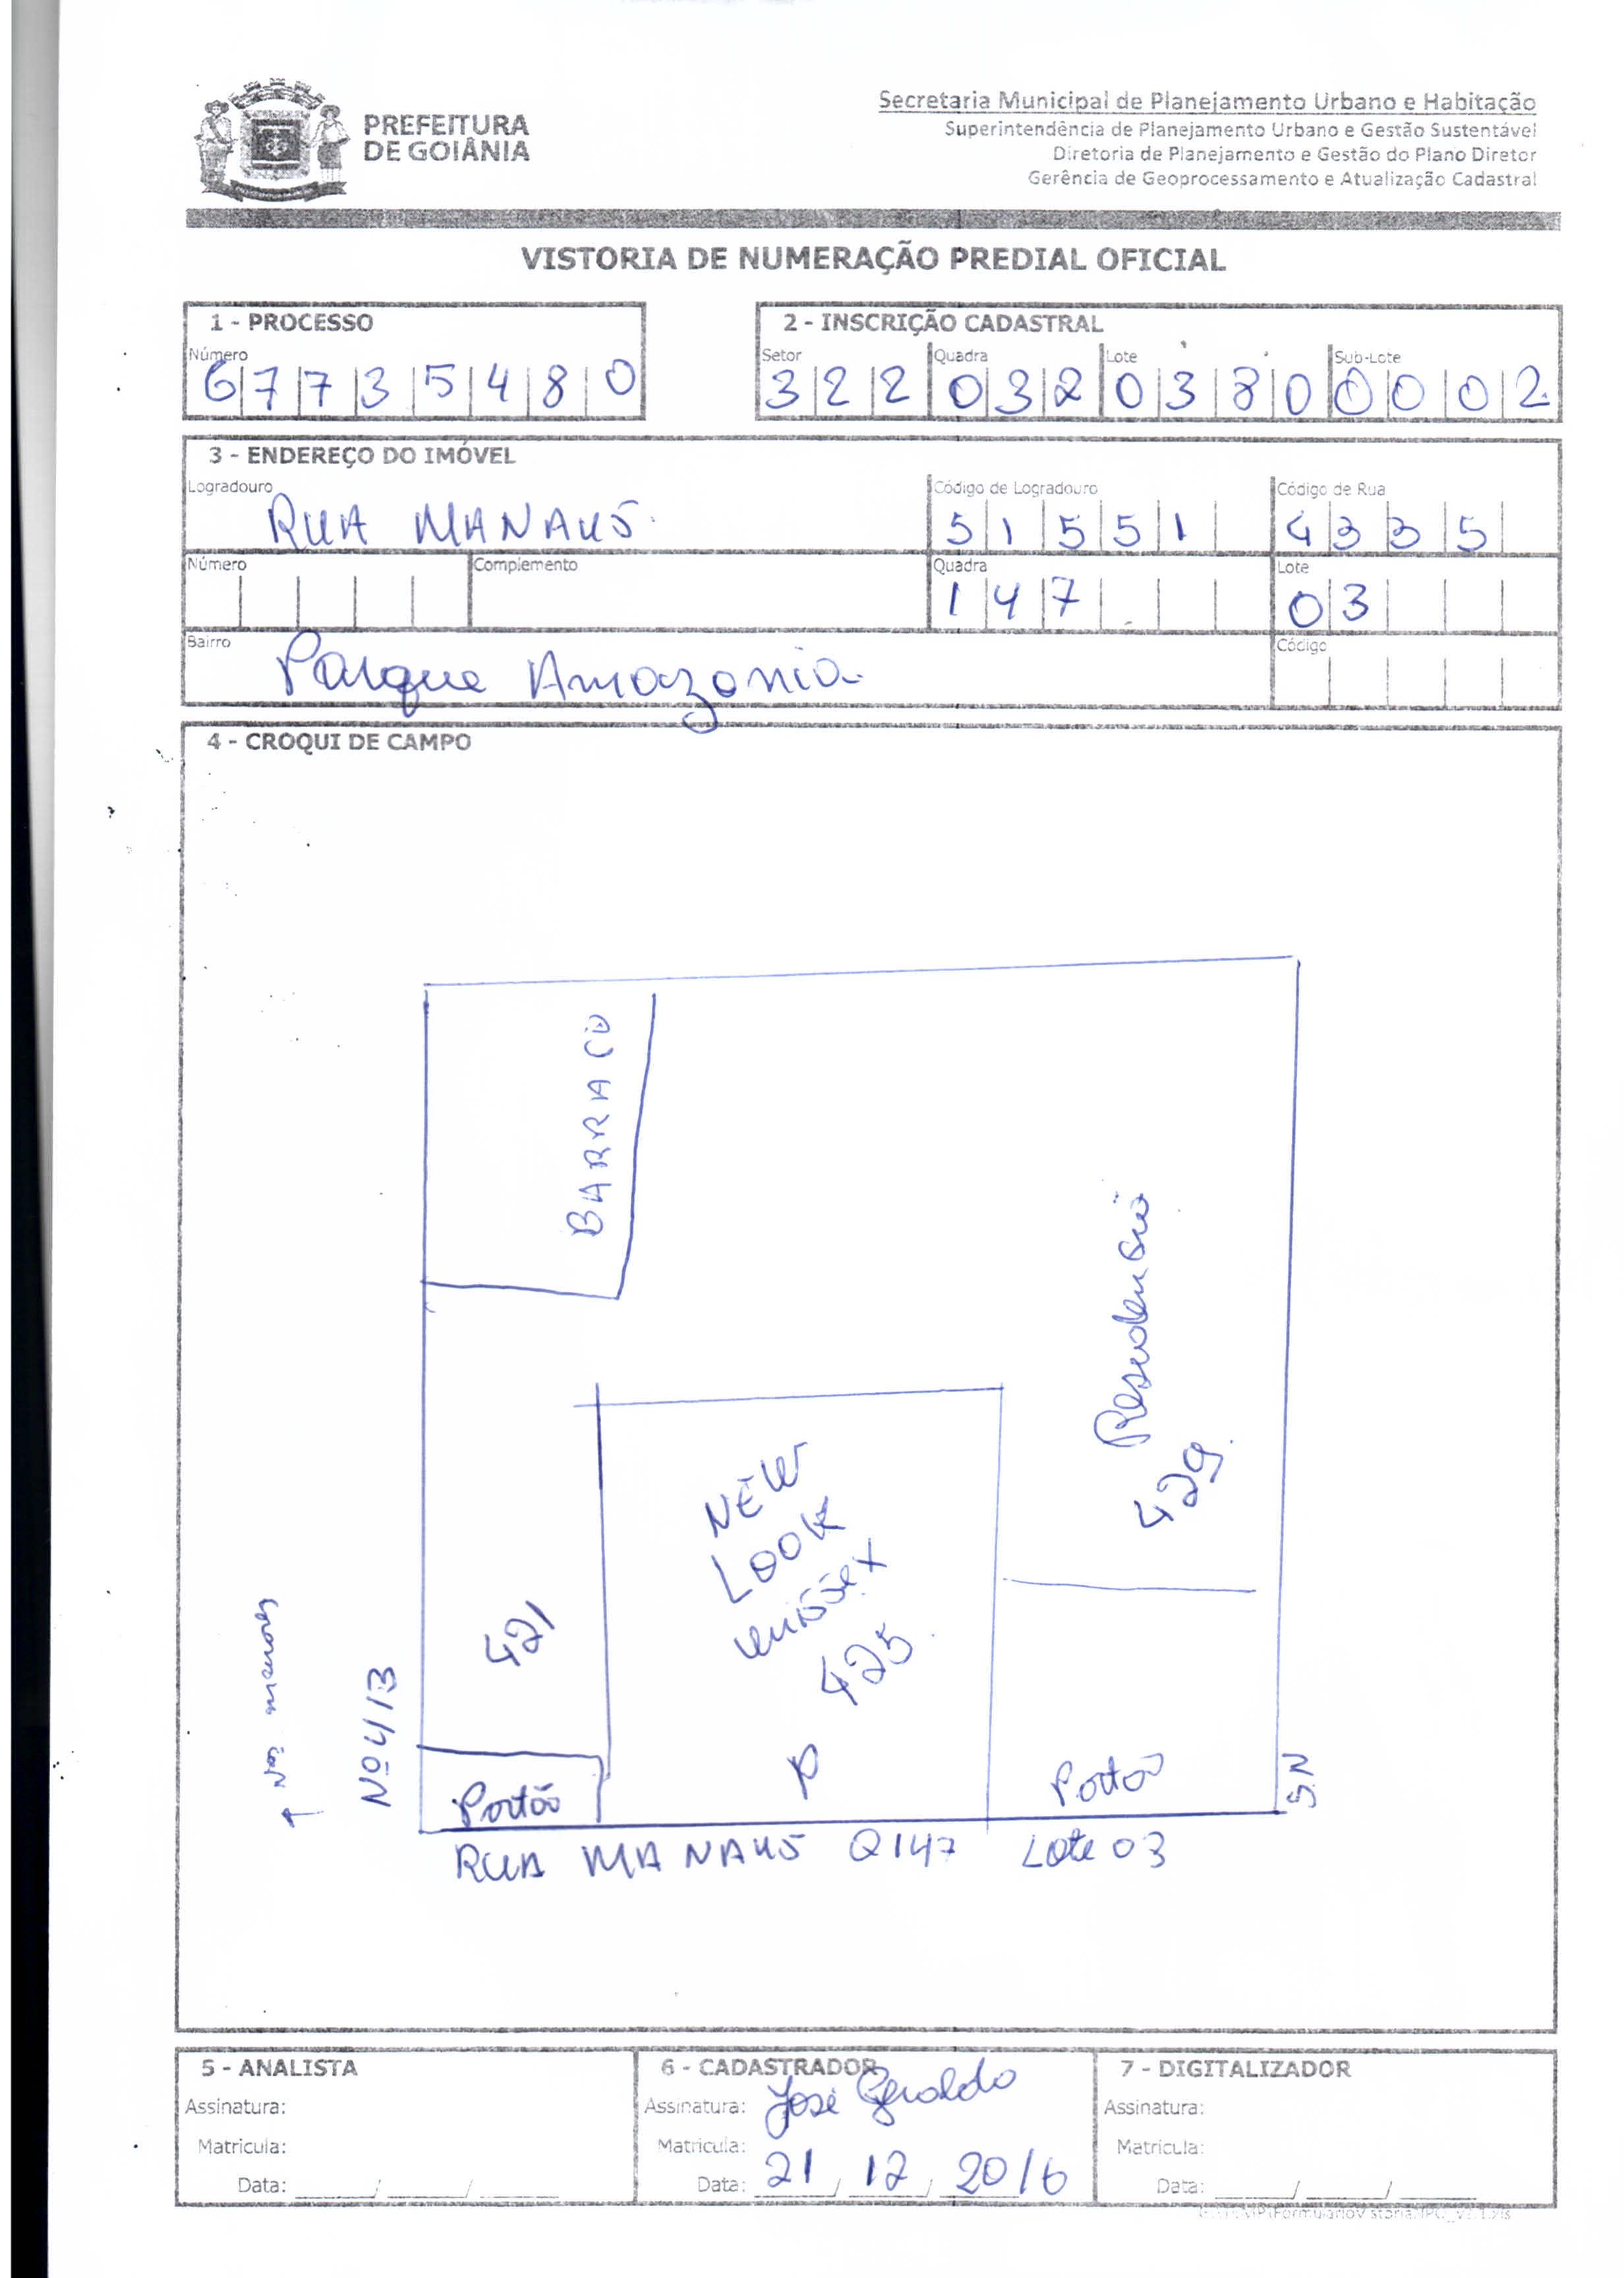 PREFEITURA
DE GOIÂNIA
Secretaria Municipal de Planejamento Urbano e Habitação
Superintendência de Planejamento Urbano e Gestão Sustentável
Diretoria de Planejamento e Gestão do Plano Diretor
Gerência de Geoprocessamento e Atualização Cadastral
VISTORIA DE NUMERAÇÃO PREDIAL OFICIAL
1 - PROCESSO
Número
6 7 7 3 5 4 8 0
2 - INSCRIÇÃO CADASTRAL
Setor Quadra Lote Sub-Lote
3 2 2 0 3 2 0 3 8 0 0 0 0 2
3 - ENDEREÇO DO IMÓVEL
Logradouro Código de Logradouro Código de Rua
RUA MANAUS 5 1 5 5 1 4 3 3 5
Número Complemento Quadra Lote
1 4 7 0 3
Bairro Código
Parque Amazonia
4 - CROQUI DE CAMPO
BARRACO
Residencia
429
NEW
LOOK
unissex
425
421
Nos menores
Nº 413
Portão
P
Portão
SN
RUA MANAUS Q147 Lote 03
5 - ANALISTA
Assinatura:
Matrícula:
Data: ____/____/____
6 - CADASTRADOR
Assinatura: José Geraldo
Matrícula:
Data: 21/12/2016
7 - DIGITALIZADOR
Assinatura:
Matrícula:
Data: ____/____/____